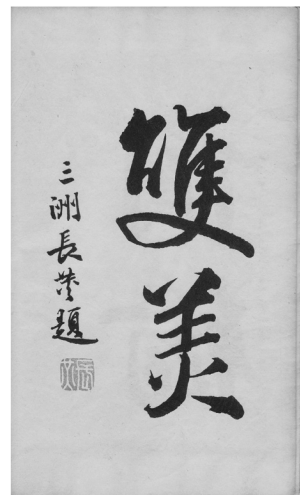 雙美
三洲長炗題